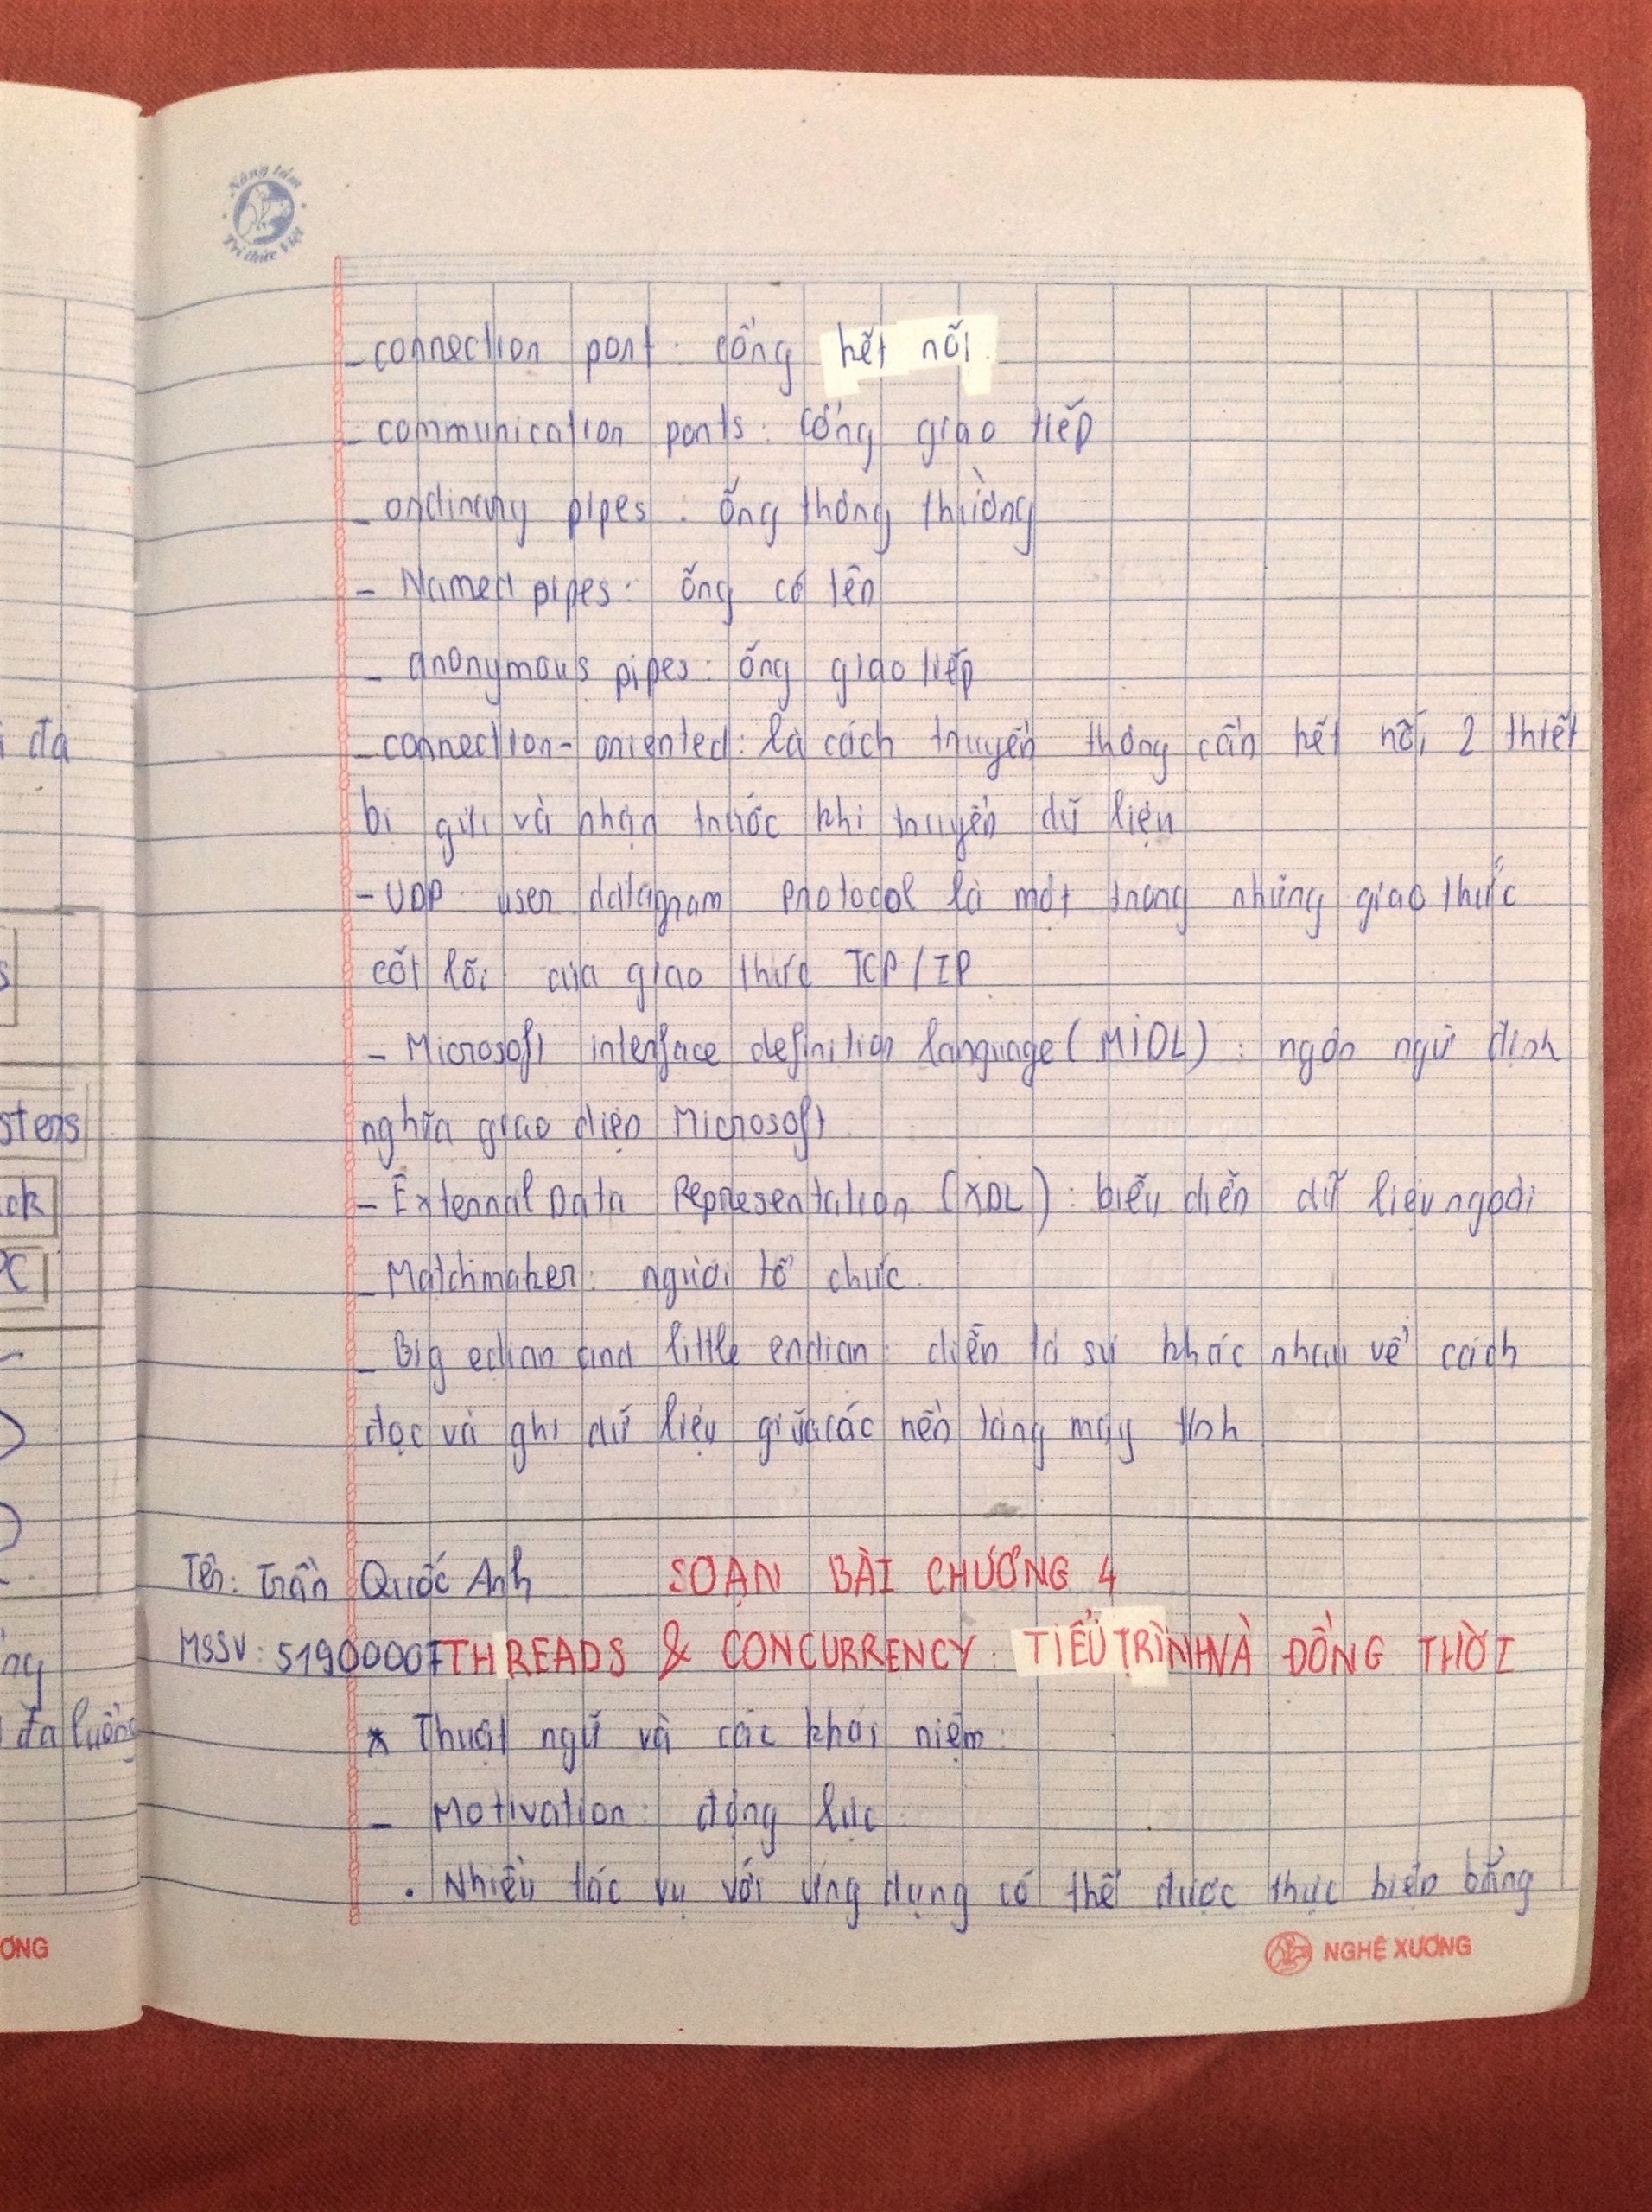 Nâng tầm
Tri thức Việt
- connection port: cổng kết nối
- communication ports: cổng giao tiếp
- ordinary pipes: ống thông thường
- Named pipes: ống có tên
- anonymous pipes: ống giao tiếp
- connection-oriented: là cách truyền thông cần kết nối 2 thiết
bị gửi và nhận trước khi truyền dữ liệu
- UDP: user datagram protocol là một trong những giao thức
cốt lõi của giao thức TCP/IP
- Microsoft interface definition language (MIDL): ngôn ngữ định
nghĩa giao diện Microsoft
- External Data Representation (XDL): biểu diễn dữ liệu ngoài
- Matchmaker: người tổ chức.
- Big edian and little endian: diễn tả sự khác nhau về cách
đọc và ghi dữ liệu giữa các nền tảng máy tính
Tên: Trần Quốc Anh SOẠN BÀI CHƯƠNG 4
MSSV: 51900007 THREADS & CONCURRENCY: TIỂU TRÌNH VÀ ĐỒNG THỜI
* Thuật ngữ và các khái niệm:
- Motivation: động lực
. Nhiều tác vụ với ứng dụng có thể được thực hiện bằng
NGHỆ XƯƠNG
đa
stens
ck
PC
ng
đa luồng
ƯƠNG